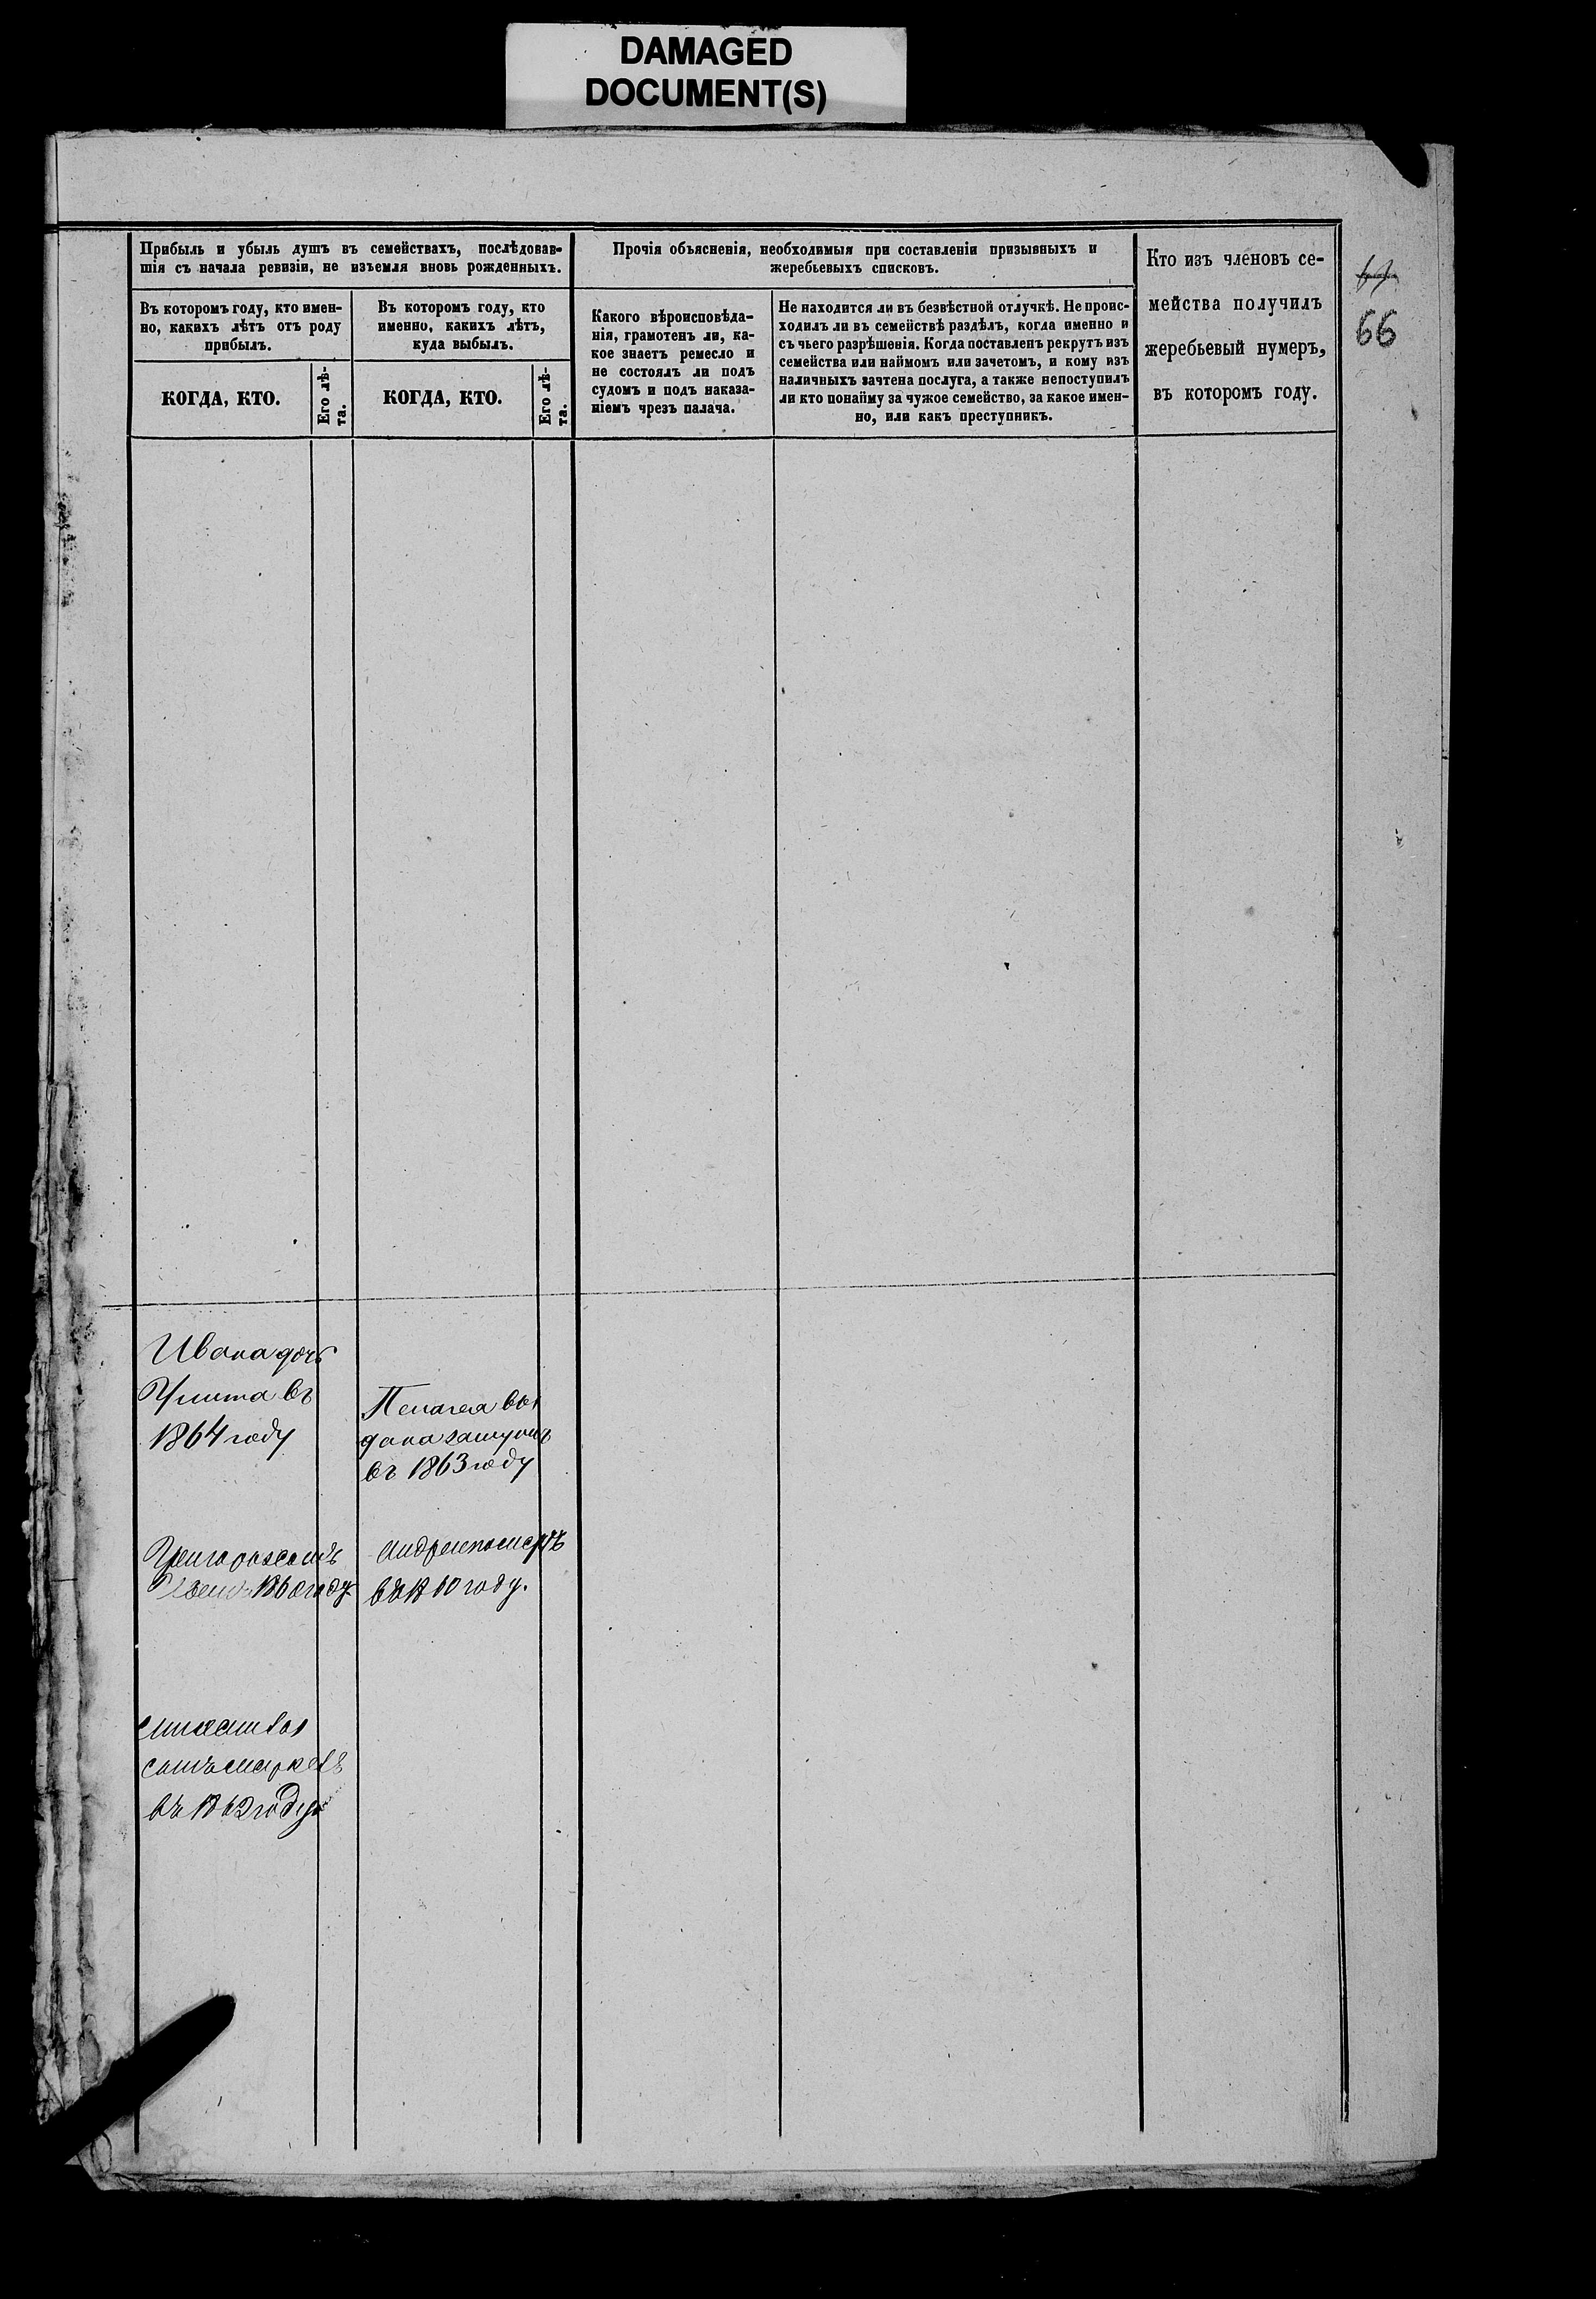 DAMAGED
DOCUMENT(S)
Прибыль и убыль душъ въ семействахъ, послѣдовав-
шія съ начала ревизіи, не изъемля вновь рожденныхъ.
Прочія объясненія, необходимыя при составленіи призывныхъ и
жеребьевыхъ списковъ.
Кто изъ членовъ се-
мейства получилъ
жеребьевый нумеръ,
въ которомъ году.
66
Въ которомъ году, кто имен-
но, какихъ лѣтъ отъ роду
прибылъ.
Въ которомъ году, кто
именно, какихъ лѣтъ,
куда выбылъ.
Какого вѣроисповѣда-
нія, грамотенъ ли, ка-
кое знаетъ ремесло и
не состоялъ ли подъ
судомъ и подъ наказа-
ніемъ чрезъ палача.
Не находится ли въ безвѣстной отлучкѣ. Не проис-
ходилъ ли въ семействѣ раздѣлъ, когда именно и
съ чьего разрѣшенія. Когда поставленъ рекрутъ изъ
семейства или наймомъ или зачетомъ, и кому изъ
наличныхъ зачтена послуга, а также непоступилъ
ли кто понайму за чужое семейство, за какое имен-
но, или какъ преступникъ.
КОГДА, КТО.
Его лѣ-
та.
КОГДА, КТО.
Его лѣ-
та.
Ивана дочь
Улита въ
1864 году
Пелагея вы
дана замужъ
въ 1863 году
Григорья сынъ
1860 году
Андрей померъ
въ году.
сынъ
въ 1862 году